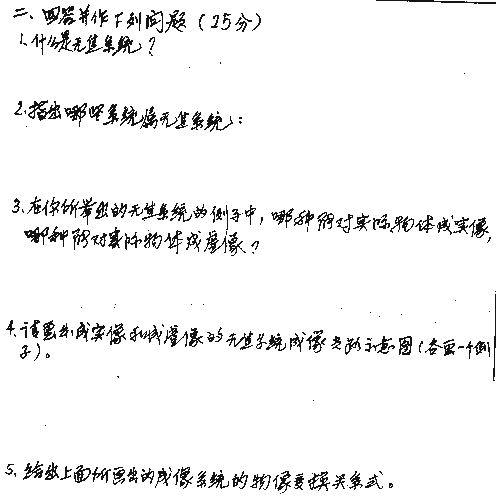 二、回答并作下列问题（25分）
1、什么是无焦系统？
2、指出哪些系统属无焦系统：
3、在你所举出的无焦系统的例子中，哪种能对实际物体成实像，
哪种能对实际物体成虚像？
4、请画出成实像和成虚像的无焦系统成像光路示意图（各画一个例
子）。
5、给出上面所画出的成像系统的物像变换关系式。